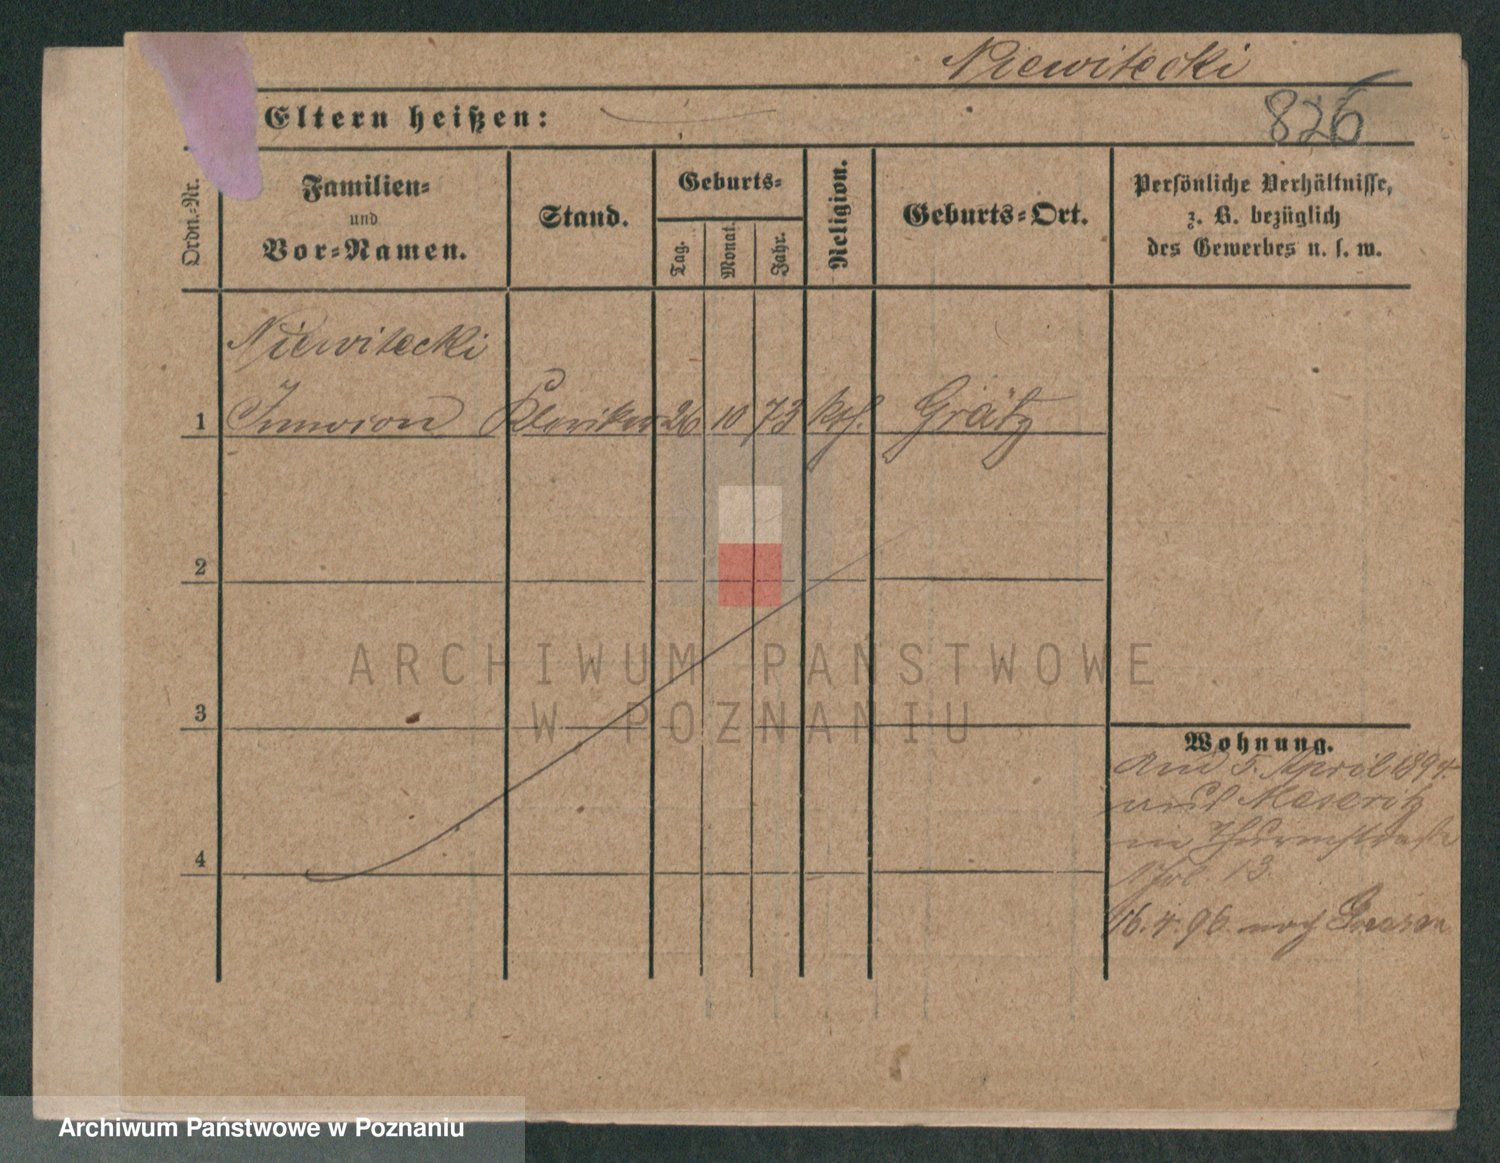 Niewitecki
826
Eltern heißen:
Ordn.-Nr.
Familien-
und
Vor-Namen.
Stand.
Geburts-
Tag.
Monat.
Jahr.
Religion.
Geburts-Ort.
Persönliche Verhältnisse,
z. B. bezüglich
des Gewerbes u. s. w.
Niewitecki
1 26 10 73 kth. Grätz
2
3
4
Wohnung.
5. April 1894.
Meseritz
Thurmstraße
No. 13
16.4.96. nach Posen
ARCHIWUM PAŃSTWOWE
W POZNANIU
Archiwum Państwowe w Poznaniu